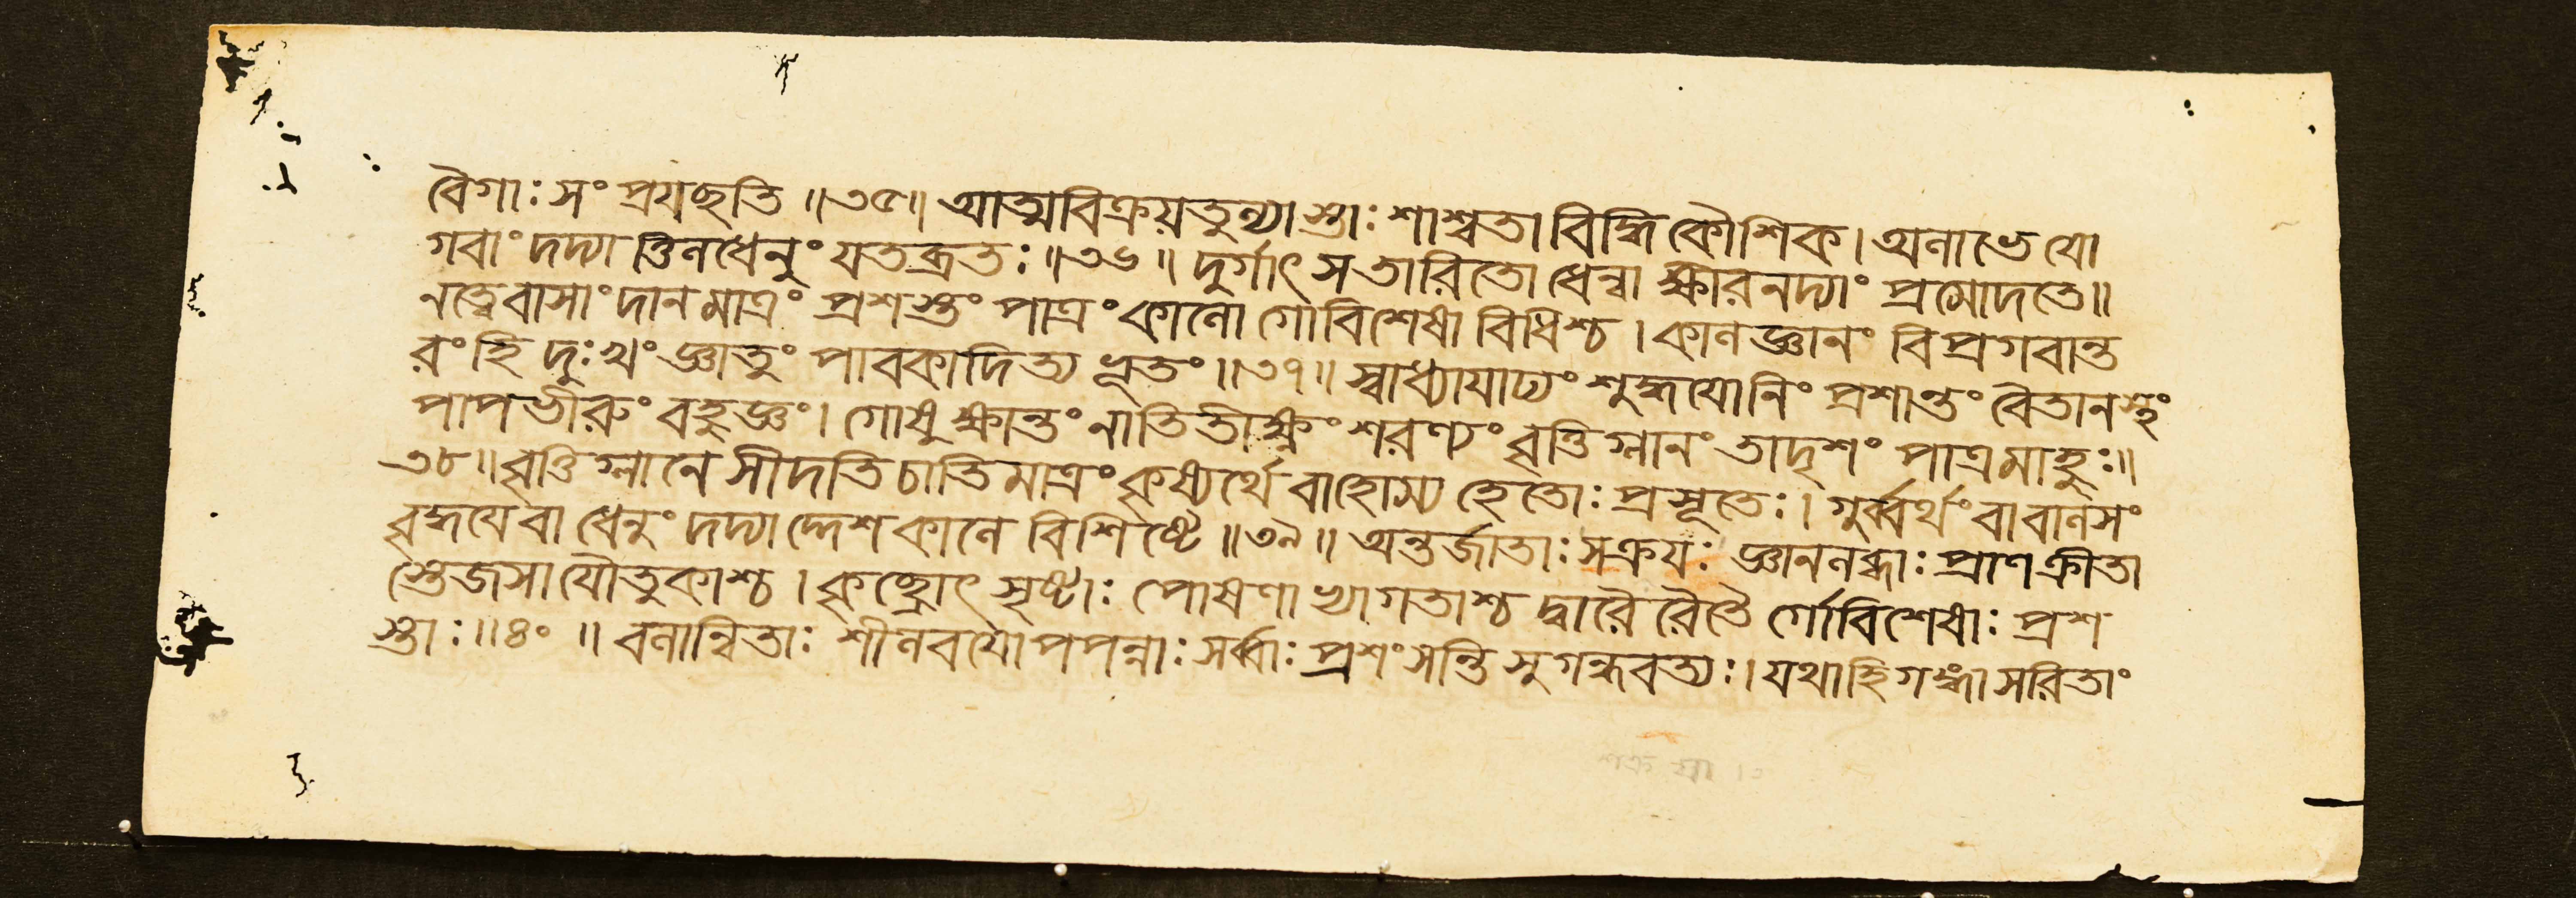 বৈগাঃ সংপ্রযছতি ॥৩৫॥ আত্মবিক্রয়তুল্যাস্তাঃ শাশ্বতা বিদ্ধি কৌশিক। অলাভে যো
গবাং দদ্যাত্তিলধেনুং যতব্রতঃ ॥৩৬॥ দুর্গাৎ স তারিতো ধেন্বা ক্ষীরনদ্যাং প্রমোদতে॥
নত্বেবাসাং দানমাত্রং প্রশস্তং পাত্রং কালো গোবিশেষো বিধিশ্চ। কালজ্ঞানং বিপ্রগবান্ত
রং হি দুঃখং জ্ঞাতুং পাবকাদিত্যভূতং ॥৩৭॥ স্বাধ্যাযাঢ্যং শুদ্ধযোনিং প্রশান্তং বৈতানস্থং
পাপভীরুং বহুজ্ঞং। গোষু ক্ষান্তং নাতিতীক্ষ্ণং শরণ্যং বৃত্তিগ্লানং তাদৃশং পাত্রমাহুঃ॥
৩৮॥ বৃত্তিগ্লানে সীদতি চাতিমাত্রং কৃষ্যর্থে বা হোম্য হেতোঃ প্রসূতেঃ। গুর্ব্বর্থং বা বালসং
বৃদ্ধযে বা ধেনুং দদ্যাদ্দেশকালে বিশিষ্টে ॥৩৯॥ অন্তর্জাতাঃ সক্রযঃ জ্ঞানলব্ধাঃ প্রাণক্রীতা
স্তেজসা যৌতুকাশ্চ। কৃচ্ছ্রোৎসৃষ্টাঃ পোষণাখ্যাগতাশ্চ দ্বারৈরেতৈর্গোবিশেষাঃ প্রশ
স্তাঃ॥৪০॥ বলান্বিতাঃ শীলবযোপপন্নাঃ সর্ব্বাঃ প্রশংসন্তি সুগন্ধবত্যঃ। যথাহি গঙ্গা সরিতাং